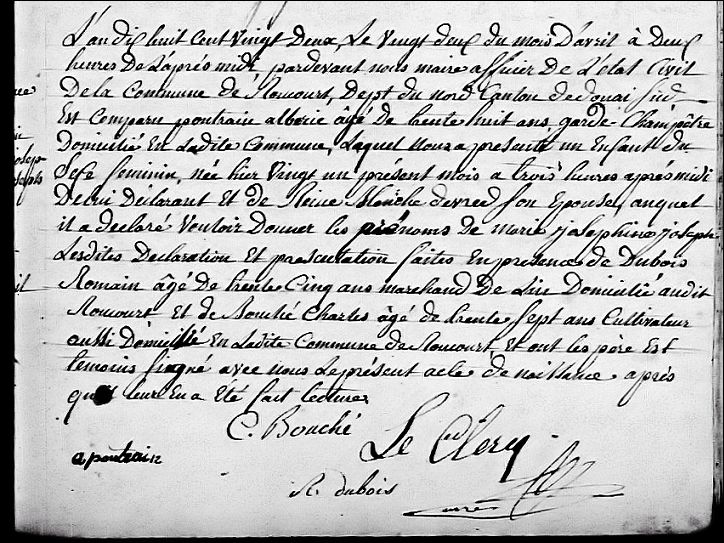 L'an dix huit Cent Vingt Deux, Le Vingt deux du mois D'avril à Deux
heures De L'après midi pardevant nous maire officier De L'état Civil
De la Commune de Roucourt, Dept du nord Canton de douai Sud
Est Comparu pontrain alberic âgé de trente huit ans garde Champêtre
Domicilié En Ladite Commune, Laquel Nous a presenté un Enfant du
Sexe feminin, née hier Vingt un présent mois a trois heures après midi
De lui Déclarant Et de Reine Blanche devred Son Epouse, auquel
il a declaré Vouloir Donner les prénoms de marie josephine joseph.
Lesdites Declaration Et presentation faites En presence de Dubois
Romain âgé de trente Cinq ans marchand De Lin Domicilié audit
Roucourt Et de Bouché Charles âgé de trente Sept ans Cultivateur
aussi Domicilié En Ladite Commune de Roucourt Et ont les père Est
temoins Signé avec nous Le présent acte de naissance après
qu'il leur En a Eté fait lecture
C. Bouché
Le Clercq
a pontrain
R. dubois